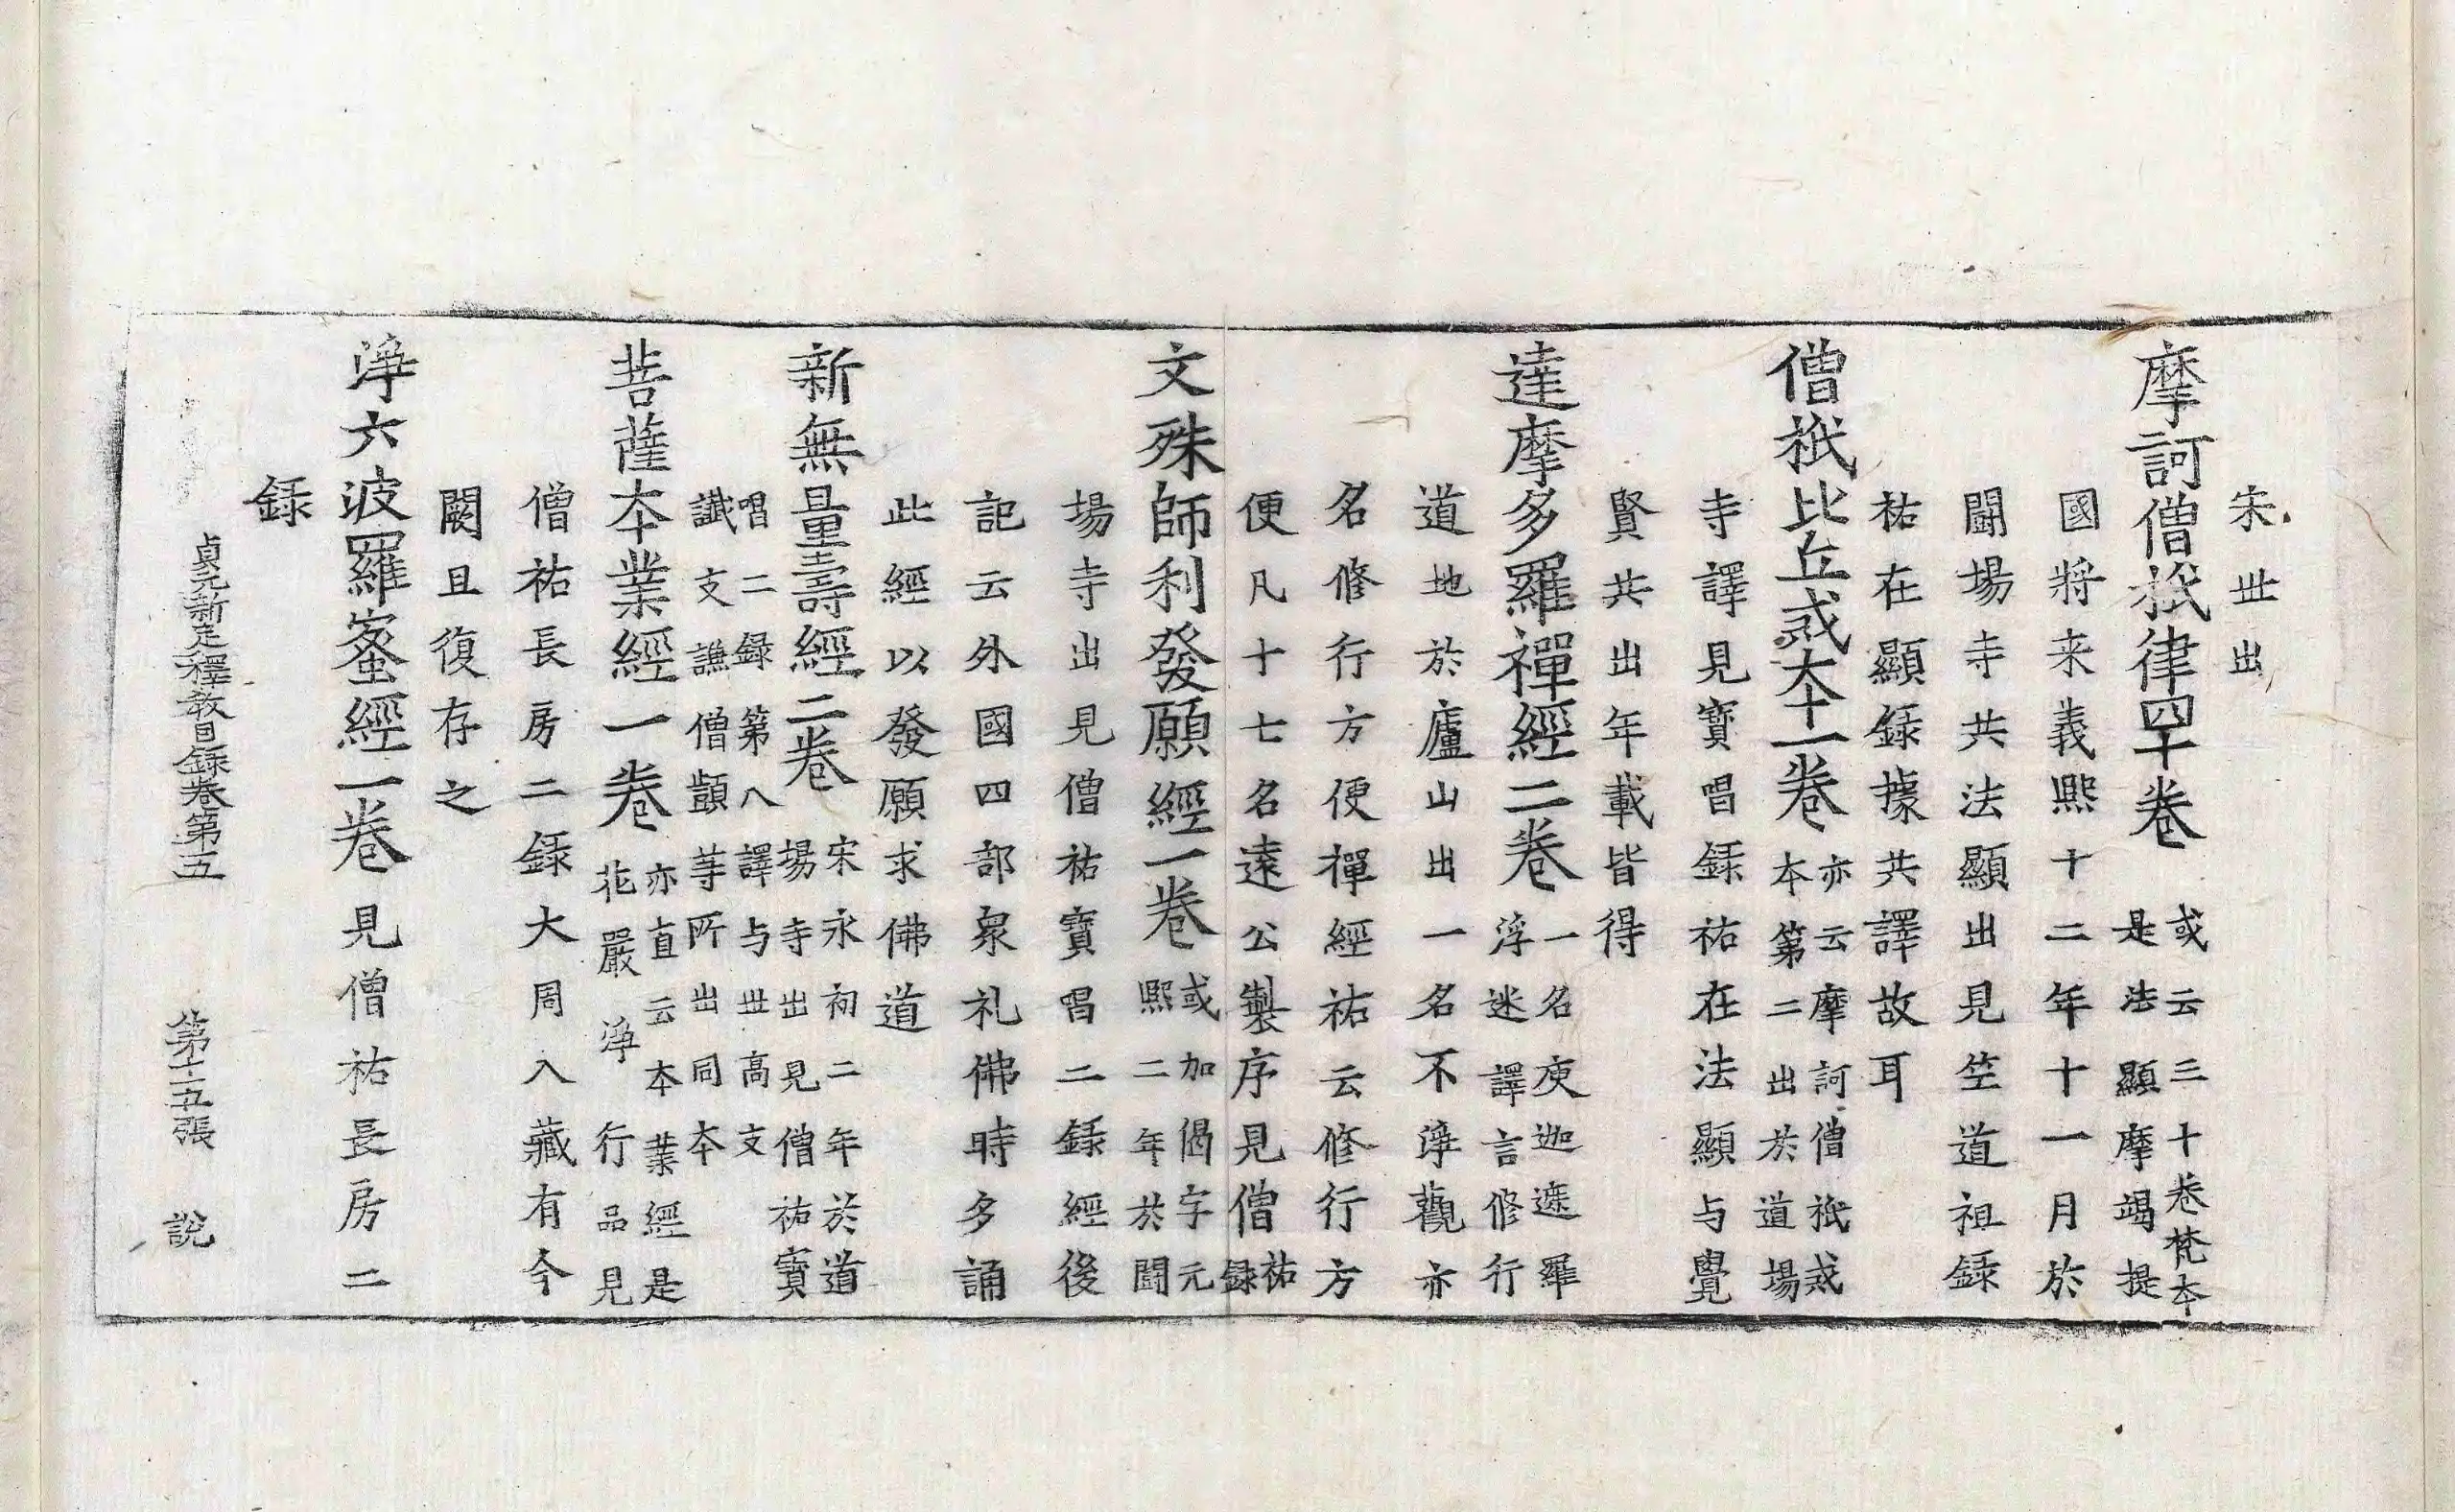 宋世出
摩訶僧祇律四十卷
或云三十卷梵本
是法顯摩竭提
國將来義熙十二年十一月於
鬪場寺共法顯出見竺道祖錄
祐在顯錄據共譯故耳
僧祇比丘戒本一卷
亦云摩訶僧祇戒
本第二出於道場
寺譯見寶唱錄祐在法顯与覺
賢共出年載皆得
達摩多羅禪經二卷
一名庾迦遮羅
浮迷譯言修行
道地於廬山出一名不淨觀亦
名修行方便禪經祐云修行方
便凡十七名遠公製序見僧祐錄
文殊師利發願經一卷
或加偈字元
熙二年於鬪
場寺出見僧祐寶唱二錄經後
記云外國四部衆礼佛時多誦
此經以發願求佛道
新無量壽經二卷
宋永初二年於道
場寺出見僧祐寶
唱二錄第八譯与世高支
讖支謙僧顗等所出同本
菩薩本業經一卷
亦直云本業經是
花嚴淨行品見
僧祐長房二錄大周入藏有今
闕且復存之
淨六波羅蜜經一卷見僧祐長房二
錄
貞元新定釋教目錄卷第五 第十五張 說